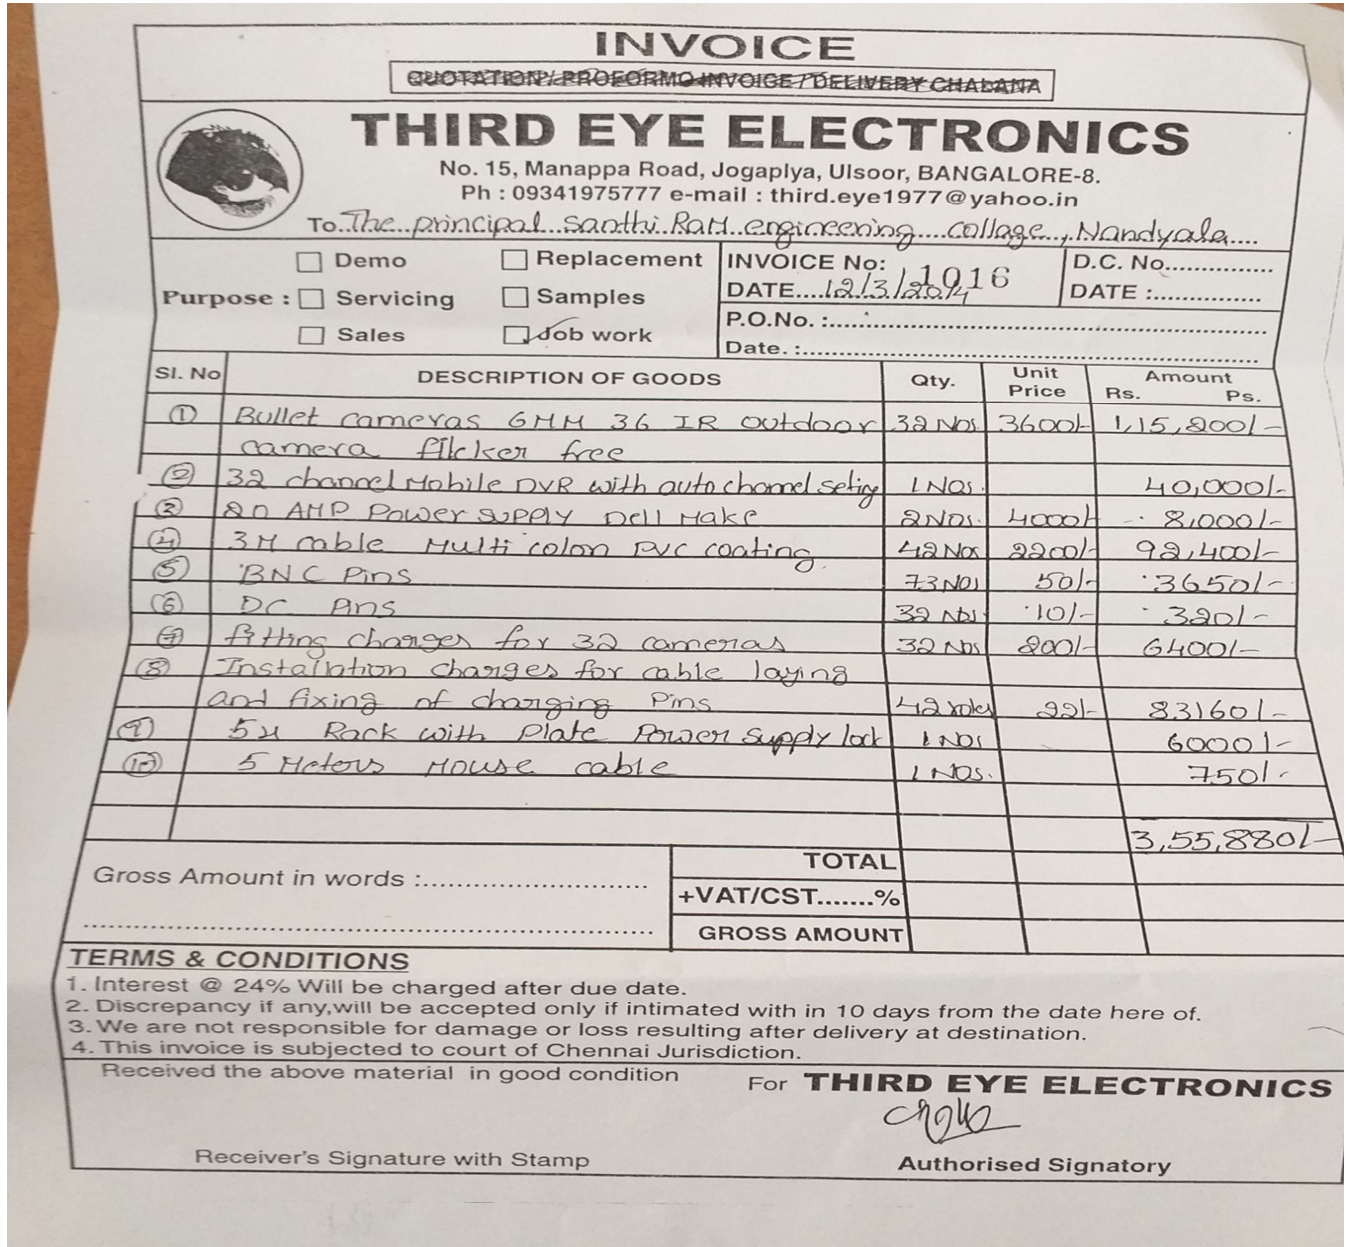 INVOICE
QUOTATION / PROFORMO INVOICE / DELIVERY CHALANA
THIRD EYE ELECTRONICS
No. 15, Manappa Road, Jogaplya, Ulsoor, BANGALORE-8.
Ph : 09341975777 e-mail : third.eye1977@yahoo.in
To The principal santhi RaM engineering collage, Nandyala
Demo Replacement INVOICE No: 1016 D.C. No...............
Purpose : Servicing Samples DATE....12/3/2014 DATE :...............
Sales Job work P.O.No. :...............
Date. :...............
Sl. No DESCRIPTION OF GOODS Qty. Unit Price Amount Rs. Ps.
1 Bullet cameras 6MM 36 IR outdoor 32 Nos 3600/- 1,15,200/-
camera flicker free
2 32 channel Mobile DVR with auto channel seting 1 Nos. 40,000/-
3 20 AMP Power supply Dell Make 2 Nos. 4000/- 8,000/-
4 3M cable Multi colon PVC coating. 42 Nos 2200/- 92,400/-
5 BNC Pins 73 Nos 50/- 3650/-
6 DC Pins 32 Nos 10/- 320/-
7 fitting charges for 32 cameras 32 Nos 200/- 6400/-
8 Installation charges for cable laying
and fixing of charging Pins 42 22/- 83160/-
9 5u Rack with Plate Power supply lock 1 Nos 6000/-
10 5 Meters Mouse cable 1 Nos. 750/-
3,55,880/-
TOTAL
Gross Amount in words :...............
+VAT/CST.......%
GROSS AMOUNT
TERMS & CONDITIONS
1. Interest @ 24% Will be charged after due date.
2. Discrepancy if any,will be accepted only if intimated with in 10 days from the date here of.
3. We are not responsible for damage or loss resulting after delivery at destination.
4. This invoice is subjected to court of Chennai Jurisdiction.
Received the above material in good condition For THIRD EYE ELECTRONICS
Receiver's Signature with Stamp Authorised Signatory